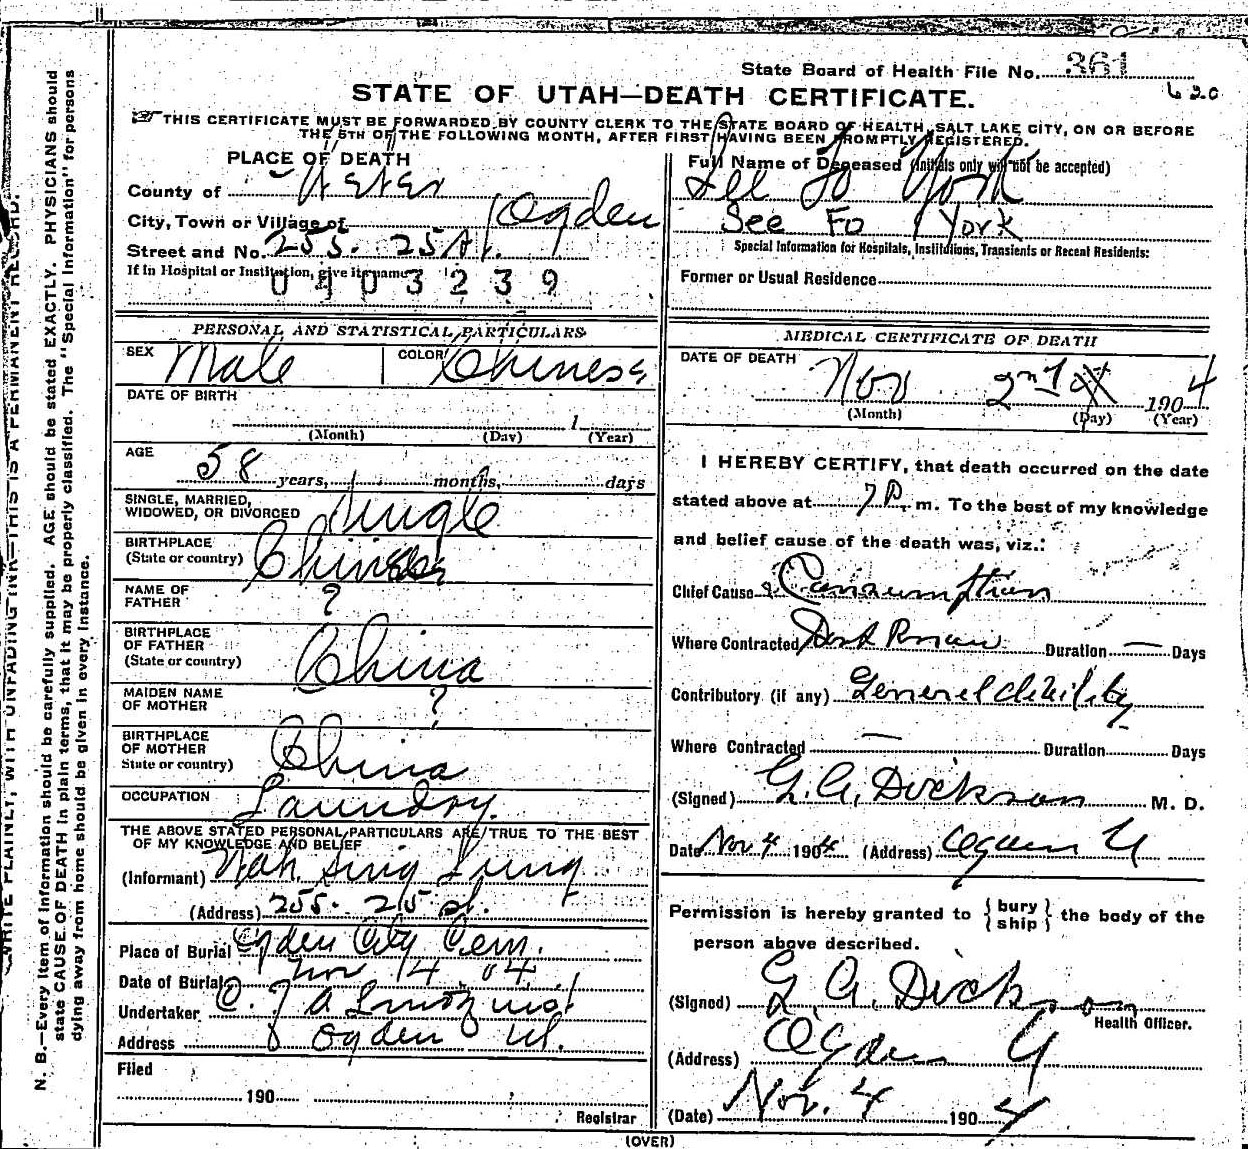 State Board of Health File No. 361
620
STATE OF UTAH—DEATH CERTIFICATE.
THIS CERTIFICATE MUST BE FORWARDED BY COUNTY CLERK TO THE STATE BOARD OF HEALTH, SALT LAKE CITY, ON OR BEFORE
THE 5TH OF THE FOLLOWING MONTH, AFTER FIRST HAVING BEEN PROMPTLY REGISTERED.
PLACE OF DEATH
County of Weber
City, Town or Village of Ogden
Street and No. 255. 25 St.
If in Hospital or Institution, give its name
0403239
Full Name of Deceased (Initials only will not be accepted)
See Fo York
See Fo York
Special Information for Hospitals, Institutions, Transients or Recent Residents:
Former or Usual Residence
PERSONAL AND STATISTICAL PARTICULARS
SEX Male COLOR Chinese
DATE OF BIRTH
1
(Month) (Day) (Year)
AGE
58 years, months, days
SINGLE, MARRIED,
WIDOWED, OR DIVORCED Single
BIRTHPLACE
(State or country)
NAME OF
FATHER ?
BIRTHPLACE
OF FATHER
(State or country) China
MAIDEN NAME
OF MOTHER ?
BIRTHPLACE
OF MOTHER
State or country) China
OCCUPATION Laundry.
THE ABOVE STATED PERSONAL PARTICULARS ARE TRUE TO THE BEST
OF MY KNOWLEDGE AND BELIEF
(Informant) Wah Sing Lung
(Address) 255. 25 st.
Place of Burial Ogden City Cem.
Date of Burial Nov 4 . 04.
Undertaker
Address Ogden Ut.
Filed
190
Registrar
MEDICAL CERTIFICATE OF DEATH
DATE OF DEATH
Nov 2nd 1904
(Month) (Day) (Year)
I HEREBY CERTIFY, that death occurred on the date
stated above at 7 P. m. To the best of my knowledge
and belief cause of the death was, viz.:
Chief Cause Consumption
Where Contracted Dont Know Duration — Days
Contributory (if any) General debility
Where Contracted — Duration Days
(Signed) G. A. Dickson M. D.
Date Nov 4 1904 (Address) Ogden U
Permission is hereby granted to { bury
ship } the body of the
person above described.
(Signed) G. A. Dickson
Health Officer.
(Address) Ogden U
(Date) Nov. 4 1904
(OVER)
WRITE PLAINLY, WITH UNFADING INK—THIS IS A PERMANENT RECORD.
N. B.—Every item of information should be carefully supplied. AGE should be stated EXACTLY. PHYSICIANS should
state CAUSE OF DEATH in plain terms, that it may be properly classified. The "Special Information" for persons
dying away from home should be given in every instance.